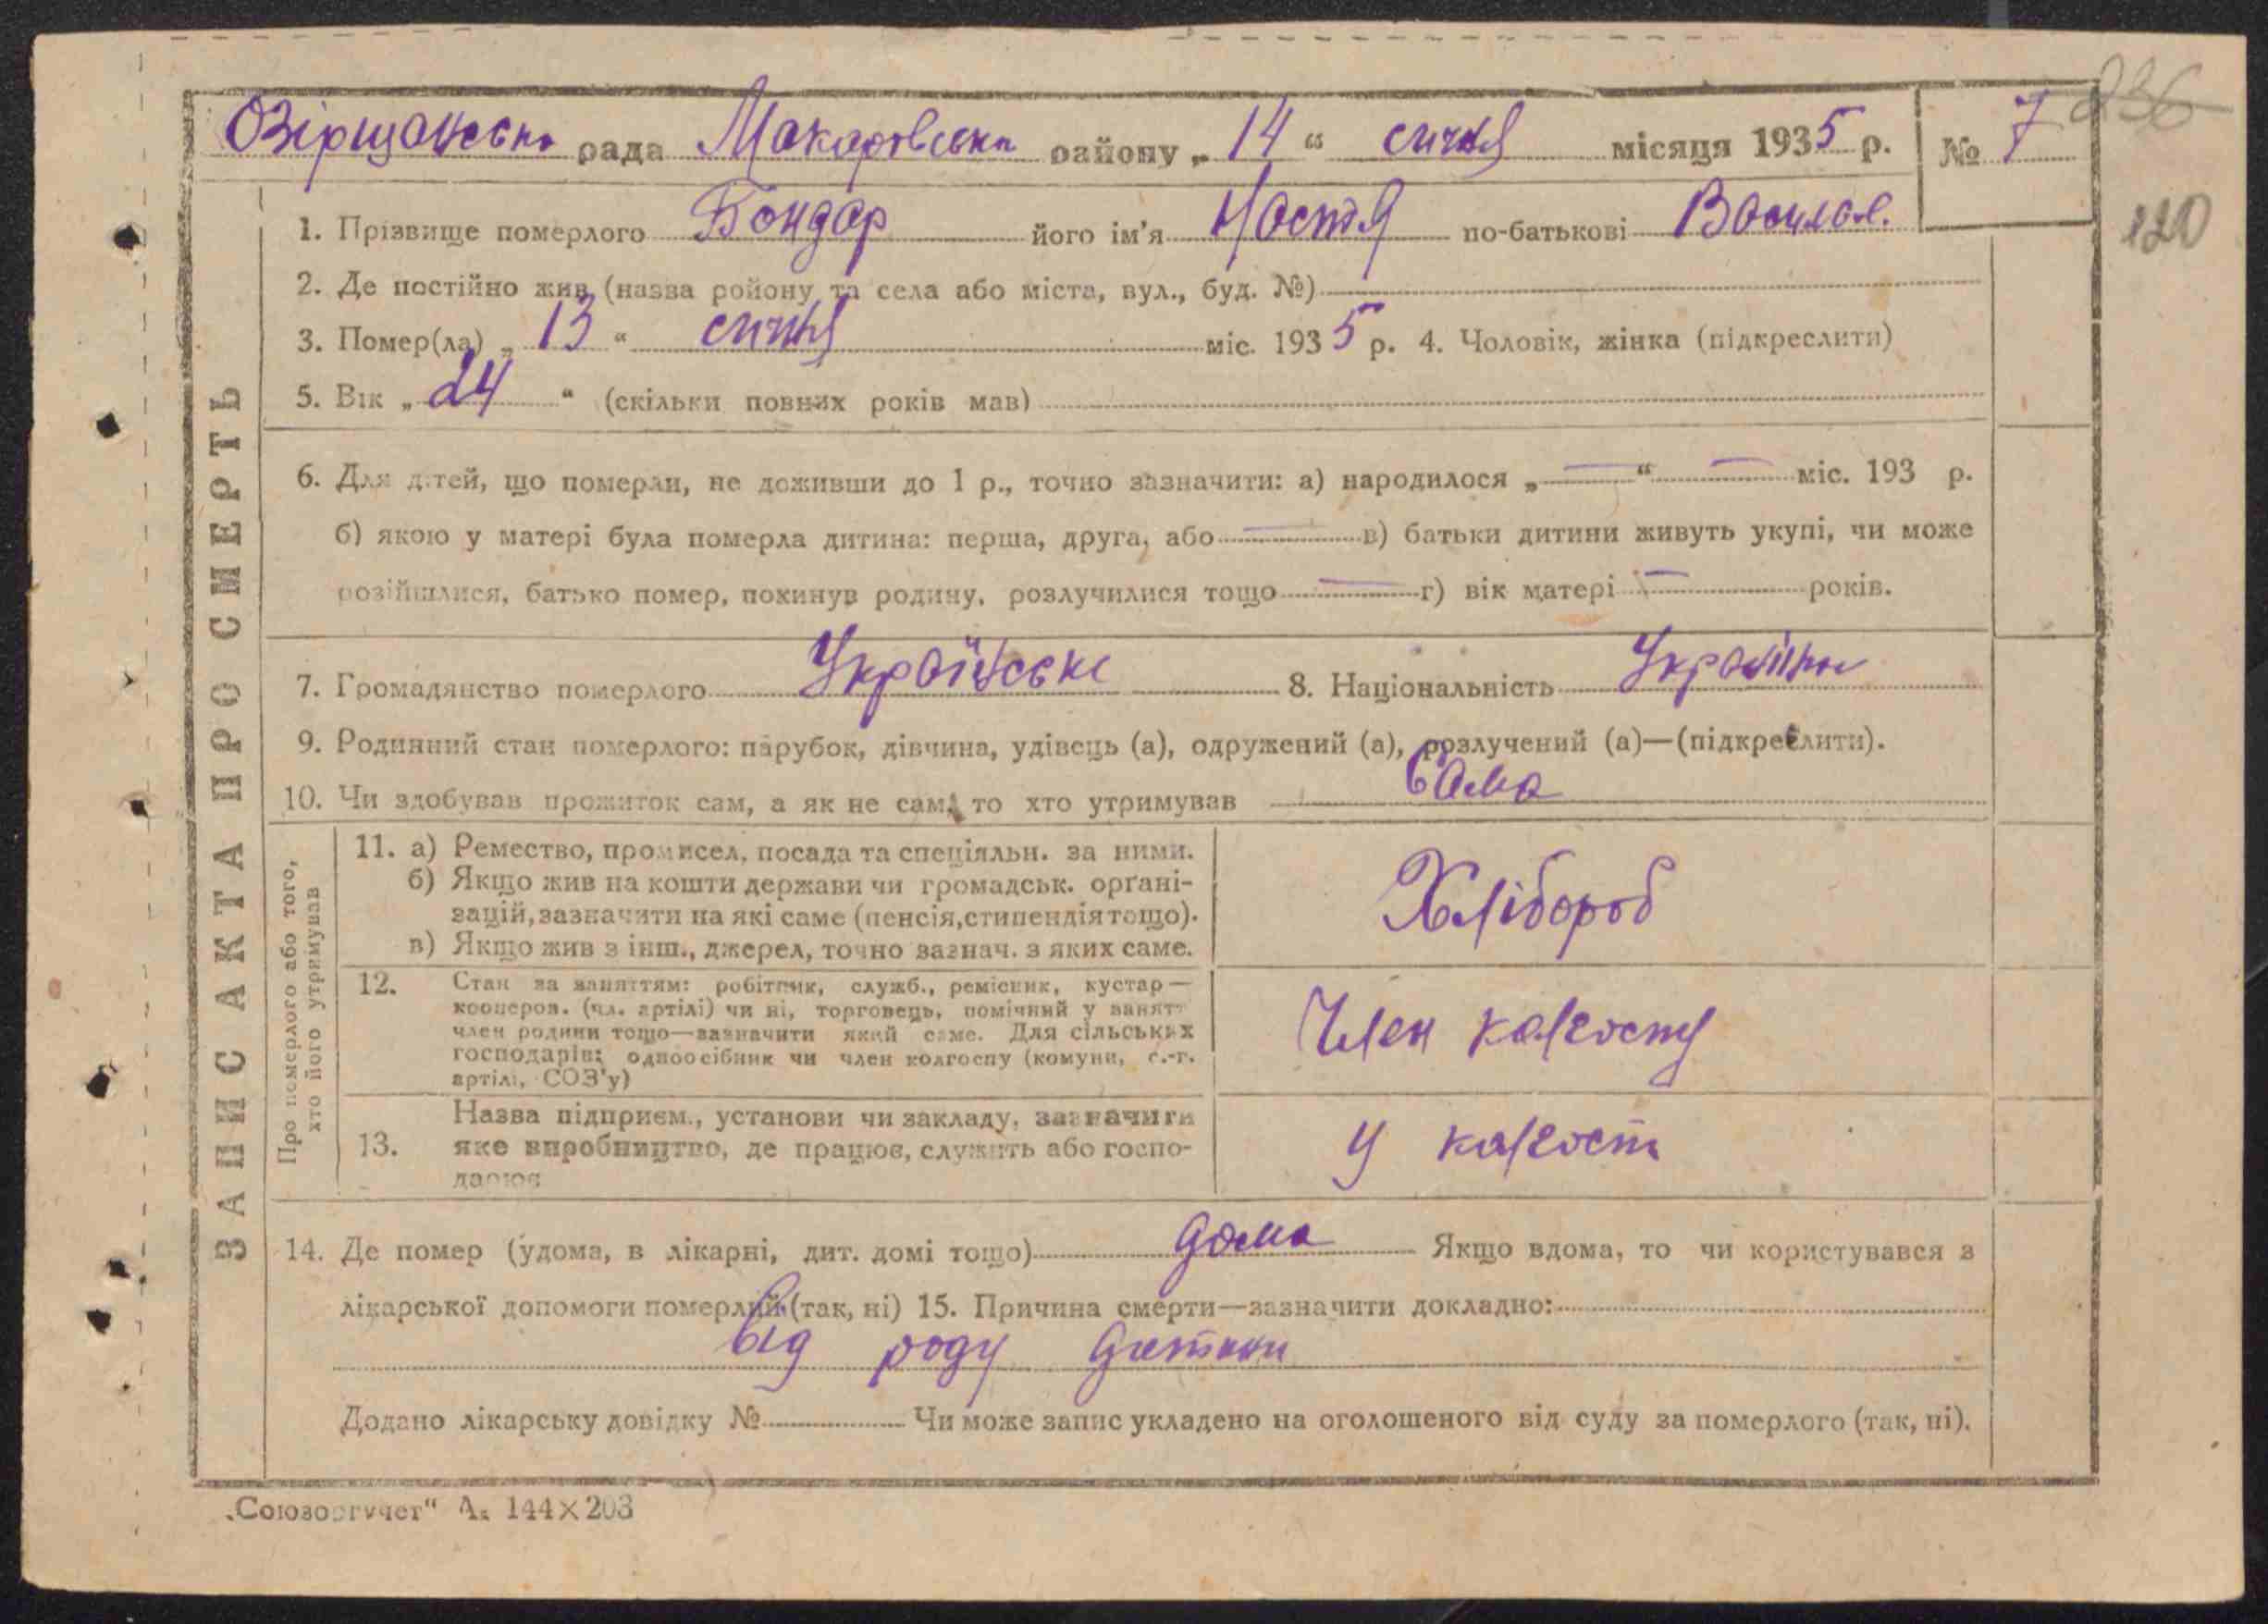 236
Озірщанська рада Макарівського району „ 14 “ січня місяця 1935 р. № 7
120
1. Прізвище померлого Бондар його ім'я Настя по-батькові Васил.
2. Де постійно жив (назва ройону та села або міста, вул., буд. №)
3. Помер(ла) „ 13 “ січня міс. 1935 р. 4. Чоловік, жінка (підкреслити)
5. Вік „ 24 “ (скільки повних років мав)
6. Для дітей, що померли, не доживши до 1 р., точно зазначити: а) народилося „ — “ — міс. 193 р.
б) якою у матері була померла дитина: перша, друга, або — в) батьки дитини живуть укупі, чи може
розійшлися, батько помер, покинув родину, розлучилися тощо — г) вік матері — років.
7. Громадянство померлого Українське 8. Національність Українка
9. Родинний стан померлого: парубок, дівчина, удівець (а), одружений (а), розлучений (а)—(підкреслити).
10. Чи здобував прожиток сам, а як не сам, то хто утримував сама
ЗАПИС АКТА ПРО СМЕРТЬ
Про померлого або того,
хто його утримував
11. а) Ремество, промисел, посада та спеціяльн. за ними.
б) Якщо жив на кошти держави чи громадськ. орґані-
зацій, зазначити на які саме (пенсія, стипендія тощо).
в) Якщо жив з інш., джерел, точно зазнач. з яких саме.
Хлібороб
12. Стан за заняттям: робітник, служб., ремісник, кустар—
кооперов. (чл. артілі) чи ні, торговець, помічний у занятт
член родини тощо—зазначити який саме. Для сільських
господарів: одноосібник чи член колгоспу (комуни, с.-г.
артілі, СОЗ'у)
Член колгоспу
13. Назва підприєм., установи чи закладу, зазначити
яке виробництво, де працює, служить або госпо-
дарює
у колгосп
14. Де помер (удома, в лікарні, дит. домі тощо) дома Якщо вдома, то чи користувався з
лікарської допомоги померлий (так, ні) 15. Причина смерти—зазначити докладно:
від роду дитини
Додано лікарську довідку № Чи може запис укладено на оголошеного від суду за померлого (так, ні).
„Союзоргучет“ А₅ 144×203